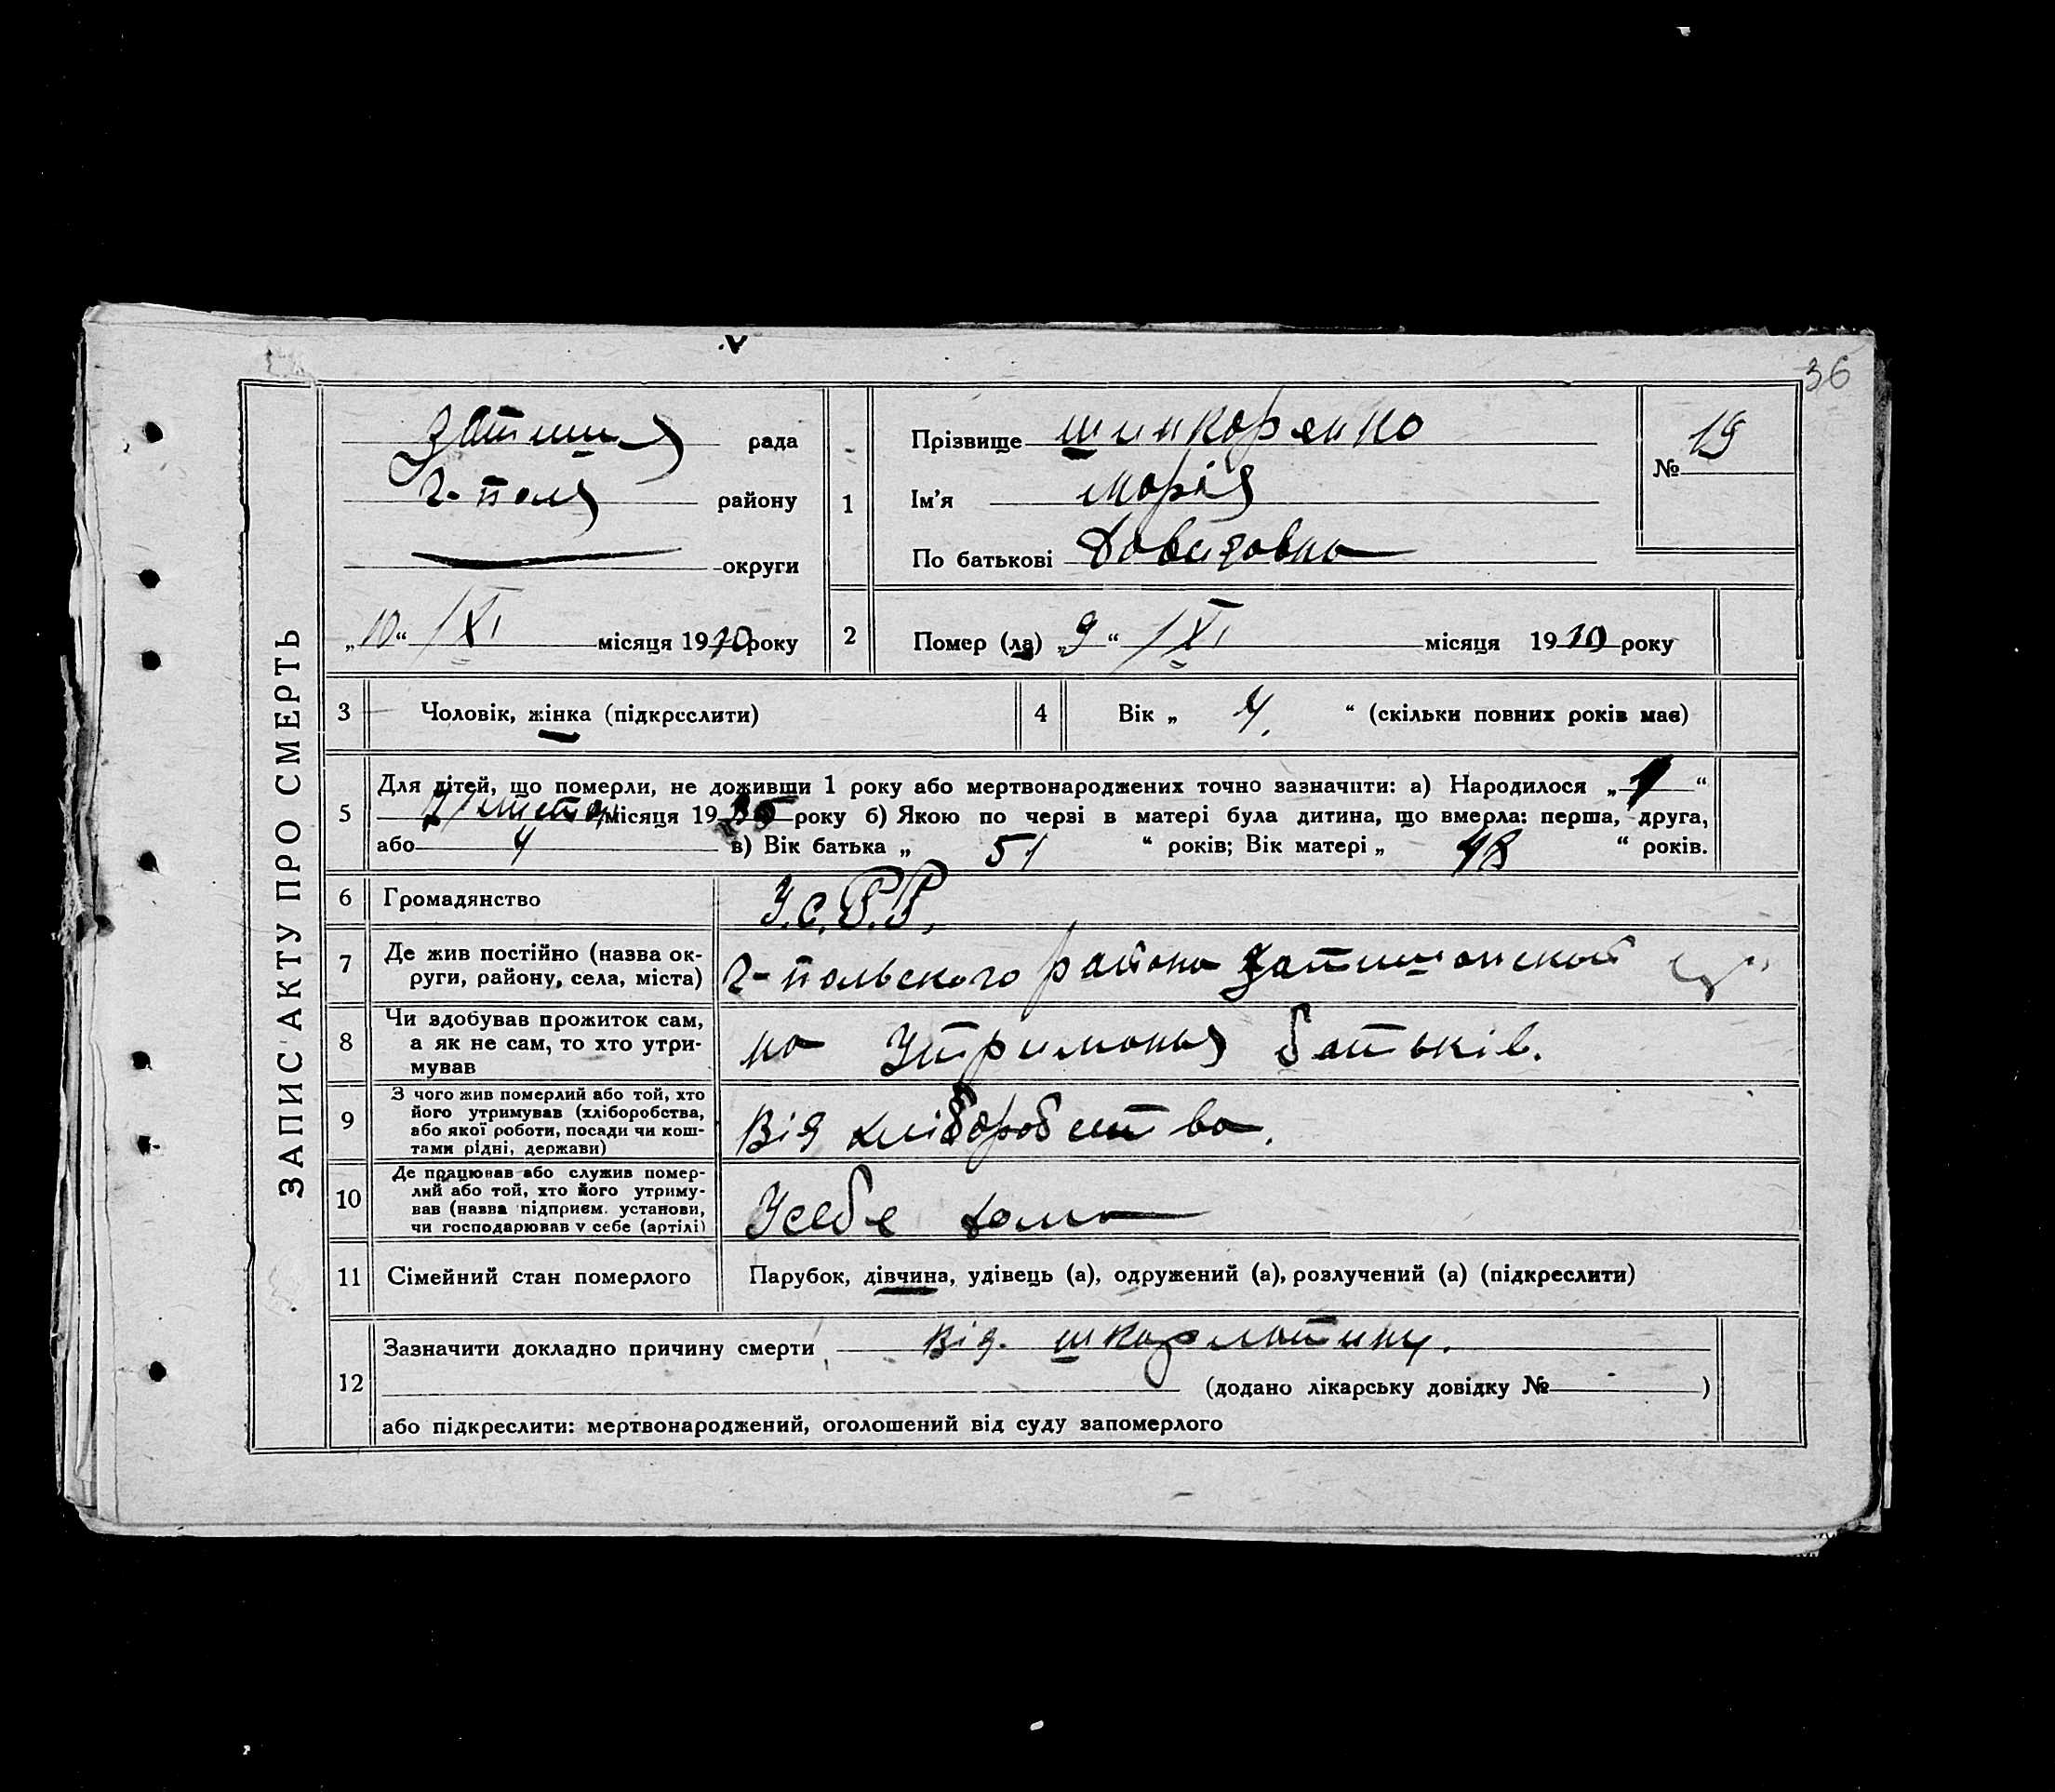 36
ЗАПИС АКТУ ПРО СМЕРТЬ
рада
Г-поля району
округи
„10“ /XI місяця 1930 року
1
Прізвище Шинкоренко
Ім'я Марія
По батькові Довидовна
№ 19
2
Помер (ла) „9“ /XI місяця 1930 року
3 Чоловік, жінка (підкреслити)
4 Вік „ 4. “ (скільки повних років має)
5
Для дітей, що померли, не доживши 1 року або мертвонароджених точно зазначити: а) Народилося „ “
місяця 19 року б) Якою по черзі в матері була дитина, що вмерла: перша, друга,
або 4 в) Вік батька „ 51 “ років; Вік матері „ 48 “ років.
6 Громадянство У.С.Р.Р.
7 Де жив постійно (назва ок-
руги, району, села, міста) Г-польского района Затишанской
8 Чи здобував прожиток сам,
а як не сам, то хто утри-
мував на Утриманья батьків.
9 З чого жив померлий або той, хто
його утримував (хліборобства,
або якої роботи, посади чи кош-
тами рідні, держави) Від хліборобства.
10 Де працював або служив помер-
лий або той, хто його утриму-
вав (назва підприєм. установи,
чи господарював у себе (артілі) Усебе дома
11 Сімейний стан померлого Парубок, дівчина, удівець (а), одружений (а), розлучений (а) (підкреслити)
12
Зазначити докладно причину смерти Від. шкарлатини.
(додано лікарську довідку № - )
або підкреслити: мертвонароджений, оголошений від суду запомерлого